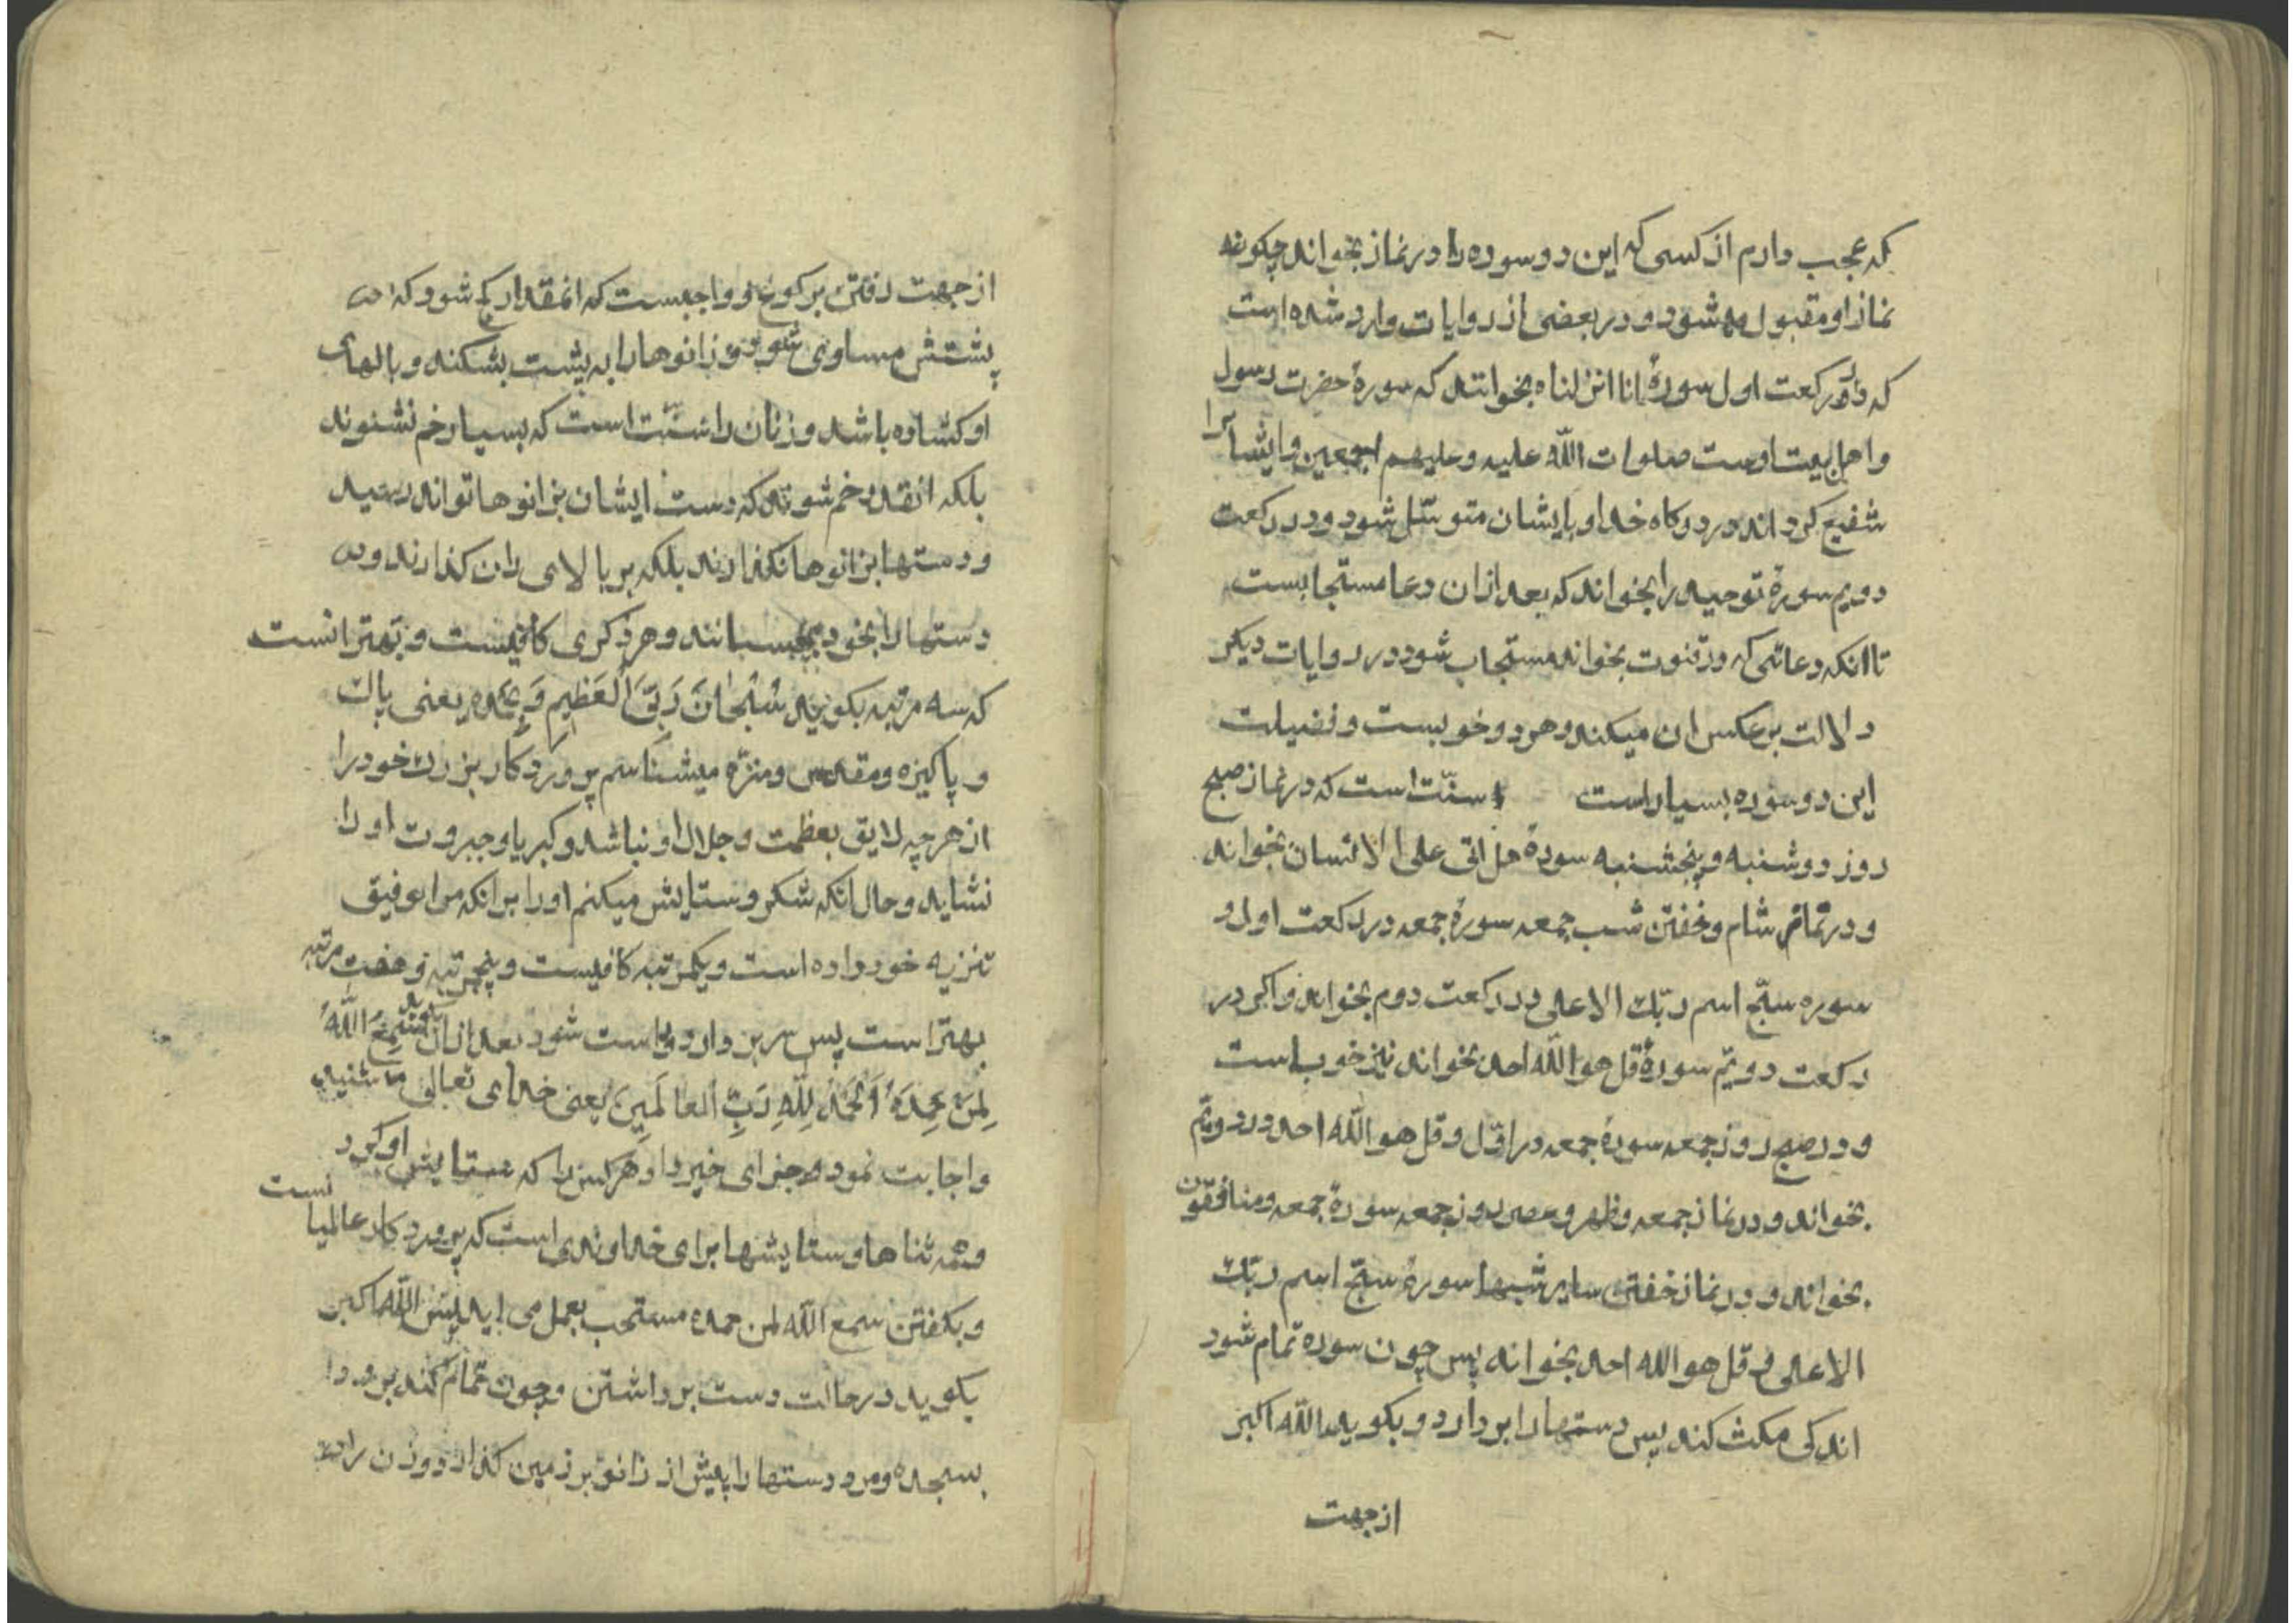 که عجب دارم از کسی که این دو سوره را در نماز بخواند چکونه
نماز او مقبول میشود و در بعضی از روایات وارد شده است
که در رکعت اول سورهٔ انا انزلناه بخوانند که سورهٔ حضرت رسول
و اهل بیت اوست صلوات اللّه علیه و علیهم اجمعین و ایشانرا
شفیع کرداند در درکاه خدا و بایشان متوسّل شود و در رکعت
دویم سورهٔ توحید را بخواند که بعد از ان دعا مستجابست
تا انکه دعائی که در قنوت بخواند مستجاب شود در روایات دیکر
دلالت بر عکس ان میکند و هر دو خوبست و فضیلت
این دو سوره بسیار است و سنّت است که در نماز صبح
روز دوشنبه و پنجشنبه سورهٔ هل اتی علی الانسان بخواند
و در نماز شام و خفتن شب جمعه سورهٔ جمعه در رکعت اول و
سوره سبّح اسم ربّك الاعلی در رکعت دوم بخواند و اکر در
رکعت دویّم سورهٔ قل هو اللّه احد بخواند نیز خوب است
و در صبح روز جمعه سورهٔ جمعه در اوّل و قل هو اللّه احد در دویّم
بخواند و در نماز جمعه و ظهر و عصر روز جمعه سورهٔ جمعه و منافقون
بخواند و در نماز خفتن سایر شبها سورهٔ سبّح اسم ربّك
الاعلی و قل هو الله احد بخواند پس چون سوره تمام شود
اندکی مکث کند پس دستها را بردارد و بکوید اللّه اکبر
از جهت
از جهت رفتن برکوع و واجبست که انمقدار کج شود که
پشتش مساوی شود و زانوها را به پشت بشکند و بالهای
او کشاده باشد و زنان را سنّت است که بسیار خم نشوند
بلکه انقدر خم شوند که دست ایشان بزانوها تواند رسید
و دستها بزانوها نکذارند بلکه بر بالای ران کذارند و
دستها را بخود بچسبانند و هر ذکری کافیست و بهتر انست
که سه مرتبه بکویند سُبْحٰانَ رَبِّیَ الْعَظِیمِ وَ بِحَمْدِهِ یعنی پاك
و پاکیزه و مقدس و منزّه میشناسم پروردکار بزرك خود را
از هر چه لایق بعظمت و جلال او نباشد و کبریا و جبروت او را
نشاید و حال انکه شکر و ستایش میکنم او را بر انکه مرا توفیق
تنزیه خود داده است و یکمرتبه کافیست و پنجمرتبه و هفت مرتبه
بهتر است پس سر بردارد و راست شود بعد از ان بکوید سَمِعَ اللّهُ
لِمَنْ حَمِدَهُ اَلْحَمْدُ لِلّهِ رَبِّ الْعالَمِینَ یعنی خدای تعالی شنید
و اجابت نمود و جزای خیر داد هر کس را که ستایش او کرد
و همه ثناها و ستایشها برای خداوندی است که پروردکار عالمیانست
و بکفتن سمع اللّه لمن حمده مستحب بعمل می اید پس اللّه اکبر
بکوید در حالت دست برداشتن و چون تمام کند برود
بسجده و مرد دستها را پیش از زانو بر زمین کذارد و زن